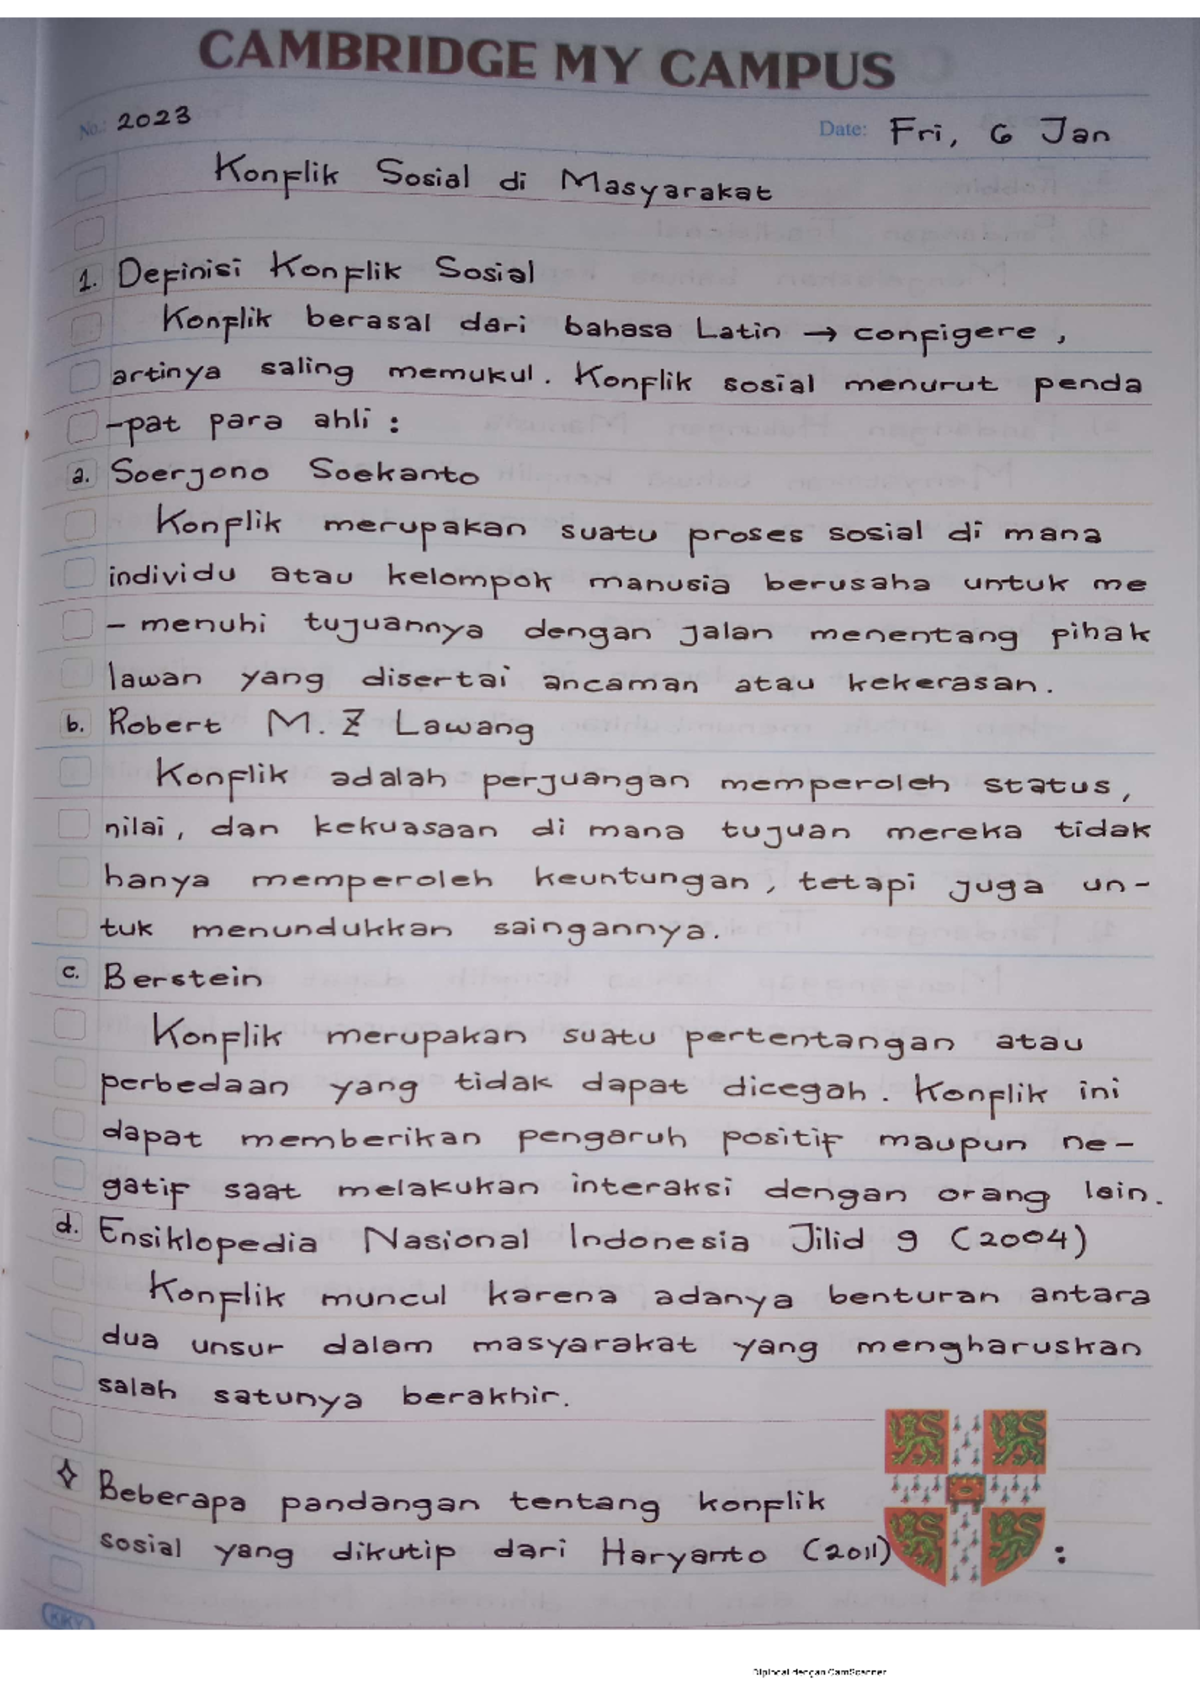 CAMBRIDGE MY CAMPUS
No.: 2023
Date: Fri, 6 Jan
Konflik Sosial di Masyarakat
1. Definisi Konflik Sosial
Konflik berasal dari bahasa Latin → configere,
artinya saling memukul. Konflik sosial menurut penda
-pat para ahli :
a. Soerjono Soekanto
Konflik merupakan suatu proses sosial di mana
individu atau kelompok manusia berusaha untuk me
- menuhi tujuannya dengan jalan menentang pihak
lawan yang disertai ancaman atau kekerasan.
b. Robert M. Z Lawang
Konflik adalah perjuangan memperoleh status,
nilai, dan kekuasaan di mana tujuan mereka tidak
hanya memperoleh keuntungan, tetapi juga un-
tuk menundukkan saingannya.
c. Berstein
Konflik merupakan suatu pertentangan atau
perbedaan yang tidak dapat dicegah. Konflik ini
dapat memberikan pengaruh positif maupun ne-
gatif saat melakukan interaksi dengan orang lain.
d. Ensiklopedia Nasional Indonesia Jilid 9 (2004)
Konflik muncul karena adanya benturan antara
dua unsur dalam masyarakat yang mengharuskan
salah satunya berakhir.
✧ Beberapa pandangan tentang konflik
sosial yang dikutip dari Haryanto (2011) :
KKY
Dipindai dengan CamScanner